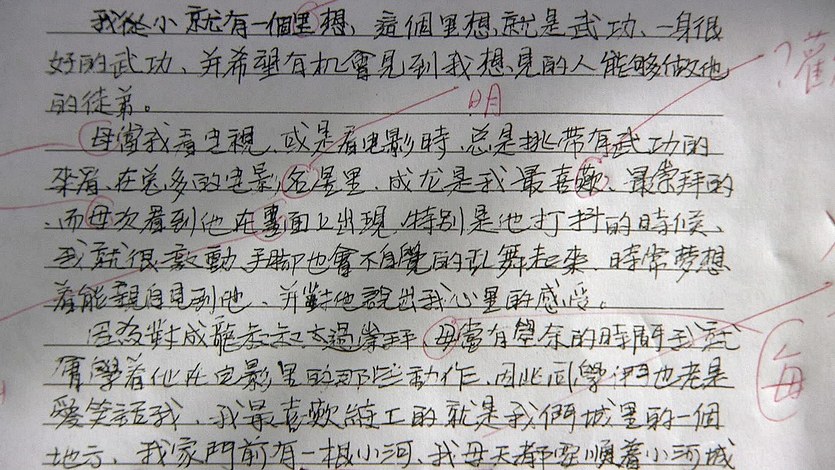 我從小就有一個里想，這個里想就是武功、一身很
好的武功、并希望有机會見到我想見的人能够做他
的徒弟。
明
母當我看电視、或是看电影時、总是挑帶有武功的
來看、在总多的电影名星里、成龙是我最喜歡、最崇拜的
而母次看到他在畫面上出現、特別是他打抖的時候、
我就很激動、手脚也會不自覺的乱舞起來、時常夢想
着能親自見到他、并對他說出我心里的感受。
因为對成龍叔叔太過崇拜、母當有學余的時間我就
學着他在电影里的那些動作、因此同學們也老是
愛笑話我、我最喜歡 的就是我們城里的一個
地方、我家門前有一根小河、我母天都 順着小河城
每